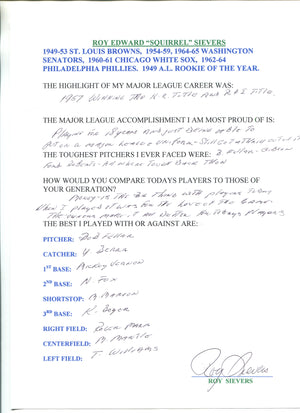 ROY EDWARD "SQUIRREL" SIEVERS
1949-53 ST. LOUIS BROWNS, 1954-59, 1964-65 WASHINGTON
SENATORS, 1960-61 CHICAGO WHITE SOX, 1962-64
PHILADELPHIA PHILLIES. 1949 A.L. ROOKIE OF THE YEAR.
THE HIGHLIGHT OF MY MAJOR LEAGUE CAREER WAS:
1957 Winning The H.R. Title And R.B.I Title.
THE MAJOR LEAGUE ACCOMPLISHMENT I AM MOST PROUD OF IS:
Playing for 18 years and just being able to
put on a major league uniform
THE TOUGHEST PITCHERS I EVER FACED WERE:
HOW WOULD YOU COMPARE TODAYS PLAYERS TO THOSE OF
YOUR GENERATION?
Money is the Big Thing with players Today
When I played it was for the Love of the Game.
THE BEST I PLAYED WITH OR AGAINST ARE:
PITCHER: Bob Feller
CATCHER: Y. Berra
1ST BASE: Mickey Vernon
2ND BASE: N. Fox
SHORTSTOP: M Marion
3RD BASE: K. Boyer
RIGHT FIELD: Roger Maris
CENTERFIELD: M. Mantle
LEFT FIELD: T. Williams
Roy Sievers
ROY SIEVERS